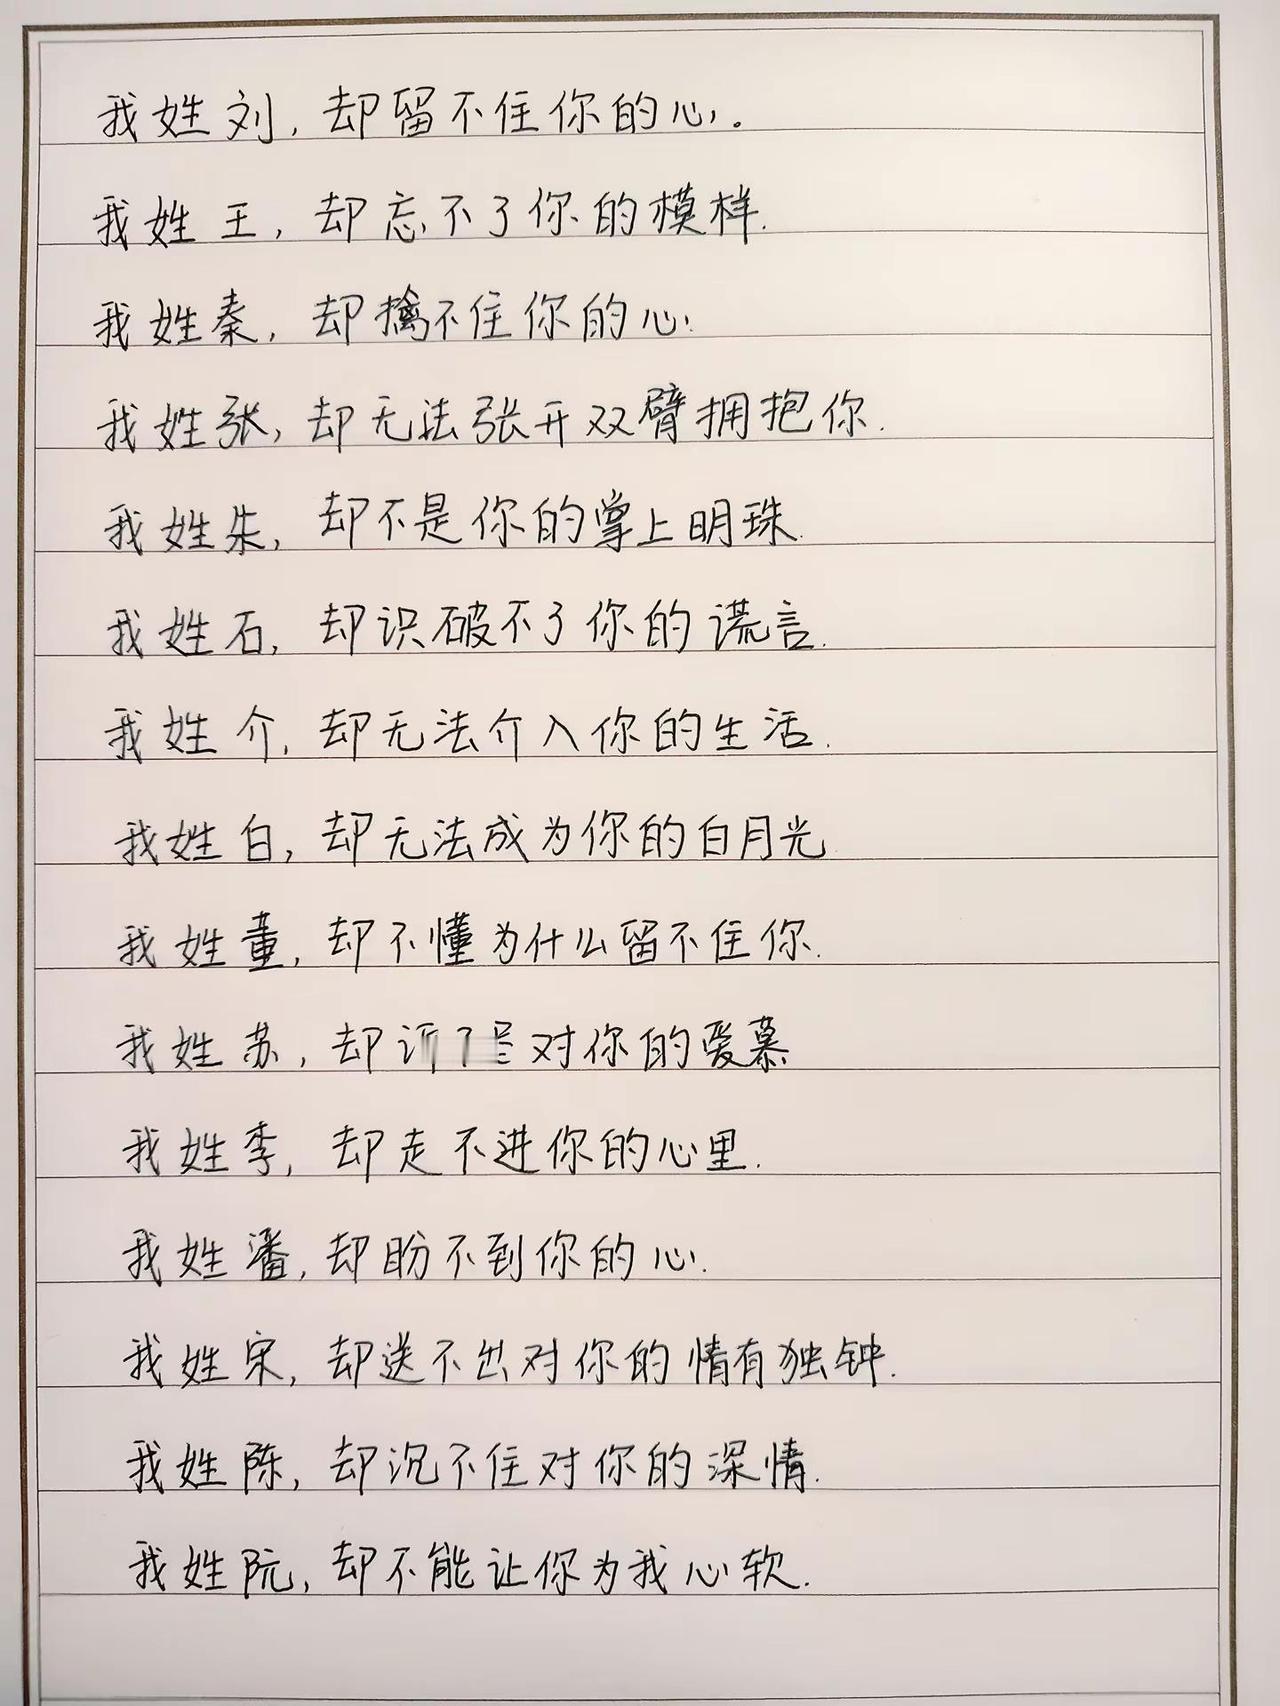 我姓刘，却留不住你的心。
我姓王，却忘不了你的模样.
我姓秦，却擒不住你的心.
我姓张，却无法张开双臂拥抱你.
我姓朱，却不是你的掌上明珠.
我姓石，却识破不了你的谎言.
我姓介，却无法介入你的生活.
我姓白，却无法成为你的白月光
我姓董，却不懂为什么留不住你.
我姓苏，却 对你的爱慕
我姓李，却走不进你的心里.
我姓潘，却盼不到你的心.
我姓宋，却送不出对你的情有独钟.
我姓陈，却沉不住对你的深情.
我姓阮，却不能让你为我心软.